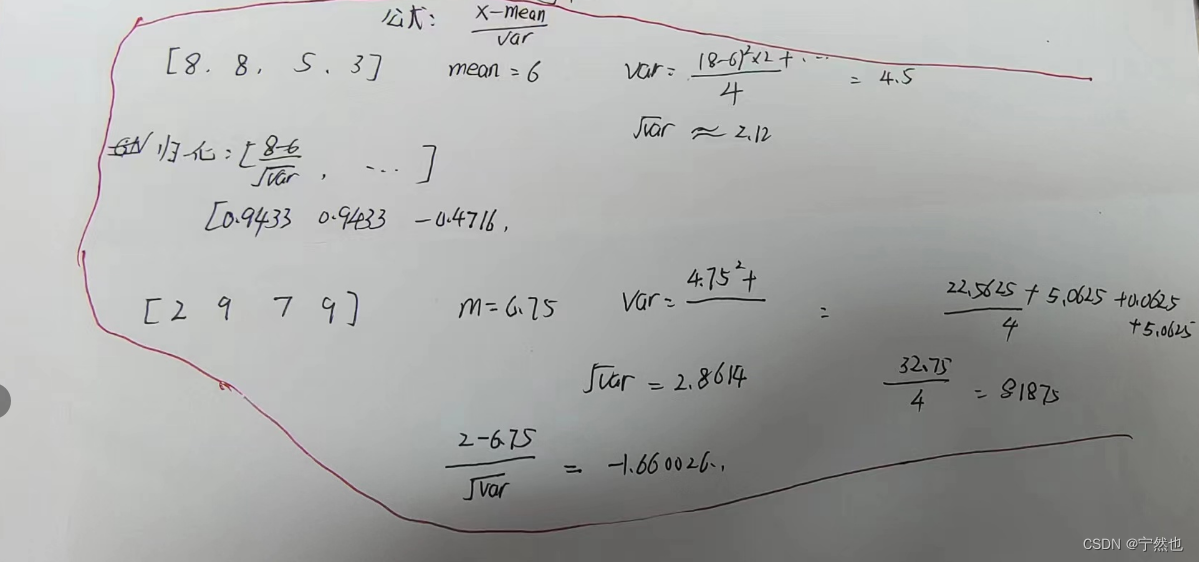 公式: x-mean / var
[8. 8, 5. 3] mean = 6 var = (8-6)²×2+... / 4 = 4.5
√var ≈ 2.12
归化: [8-6 / √var , ...]
[0.9433 0.9433 -0.4716,
[2 9 7 9] m=6.75 var = 4.75²+ = 22.5625 + 5.0625 +0.0625 +5.0625 / 4
√var = 2.8614 32.75 / 4 = 81875
2-6.75 / √var = -1.660026..
CSDN @宁然也